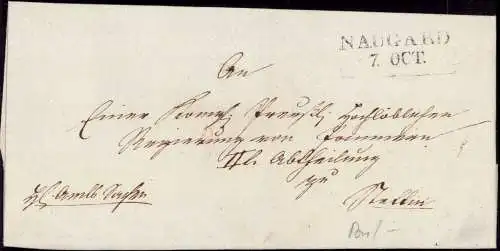 NAUGARD
7. OCT.
An
Einer Königl. Preußl. Hochlöblichen
Regierung von Pommern
IIte Abtheilung
zu
Stettin
Amts Sachen